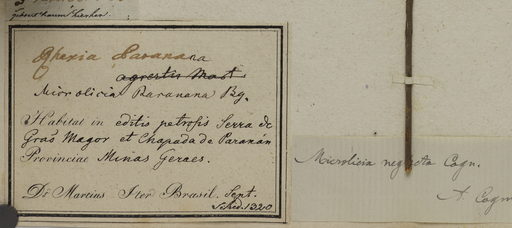 Rhexia Paranana
agrestis Mart
Microlicia Paranana Bg.
Habitat in editis petrosis Serra de
Grao Magor et Chapada de Paranán
Provinciae Minas Geraes.
Dr Martius Iter Brasil. Sept.
Sched. 1320
Microlicia neglecta Cogn.
A. Cogn